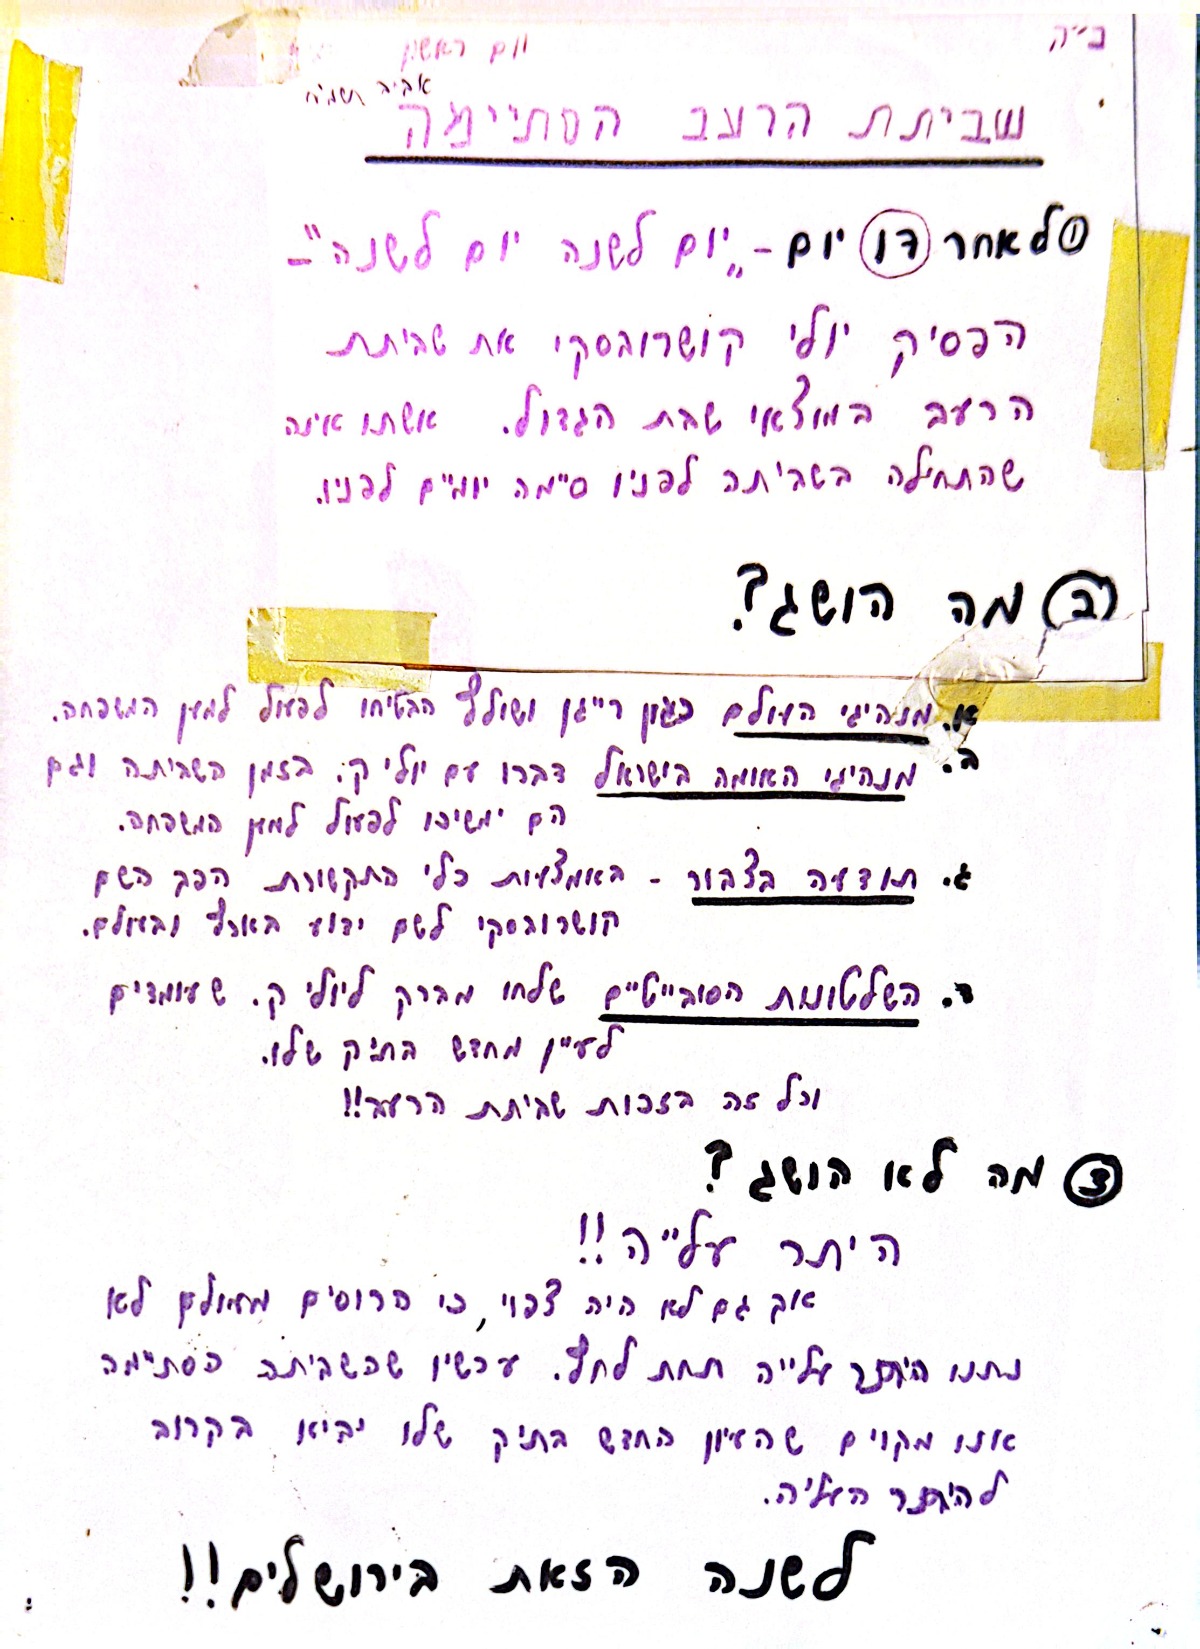 ב״ה
יום ראשון
אביב תשמ״ח
שביתת הרעב הסתיימה
① לאחר 17 יום - „יום לשנה יום לשנה" -
הפסיק יולי קושרובסקי את שביתת
הרעב במוצאי שבת הגדול. אשתו אינה
שהתחילה בשביתה לפניו סיימה יומיים לפניו.
② מה הושג?
א. מנהיגי העולם כגון רייגן ושולץ הבטיחו לפעול למען המשפחה.
ב. מנהיגי האומה בישראל דברו עם יולי ק. בזמן השביתה וגם
הם ימשיכו לפעול למען המשפחה.
ג. תודעה בצבור - באמצעות כלי התקשורת הפך השם
קושרובסקי לשם ידוע בארץ ובעולם.
ד. השלטונות הסובייטיים שלחו מברק ליולי ק. שעומדים
לעיין מחדש בתיק שלו.
וכל זה בזכות שביתת הרעב!!
③ מה לא הושג?
היתר עלייה!!
אך גם לא היה צפוי, כי הרוסים מעולם לא
נתנו היתר עלייה תחת לחץ. עכשיו שהשביתה הסתיימה
אנו מקוים שהעיון החדש בתיק שלו יביא בקרוב
להיתר העליה.
לשנה הזאת בירושלים!!